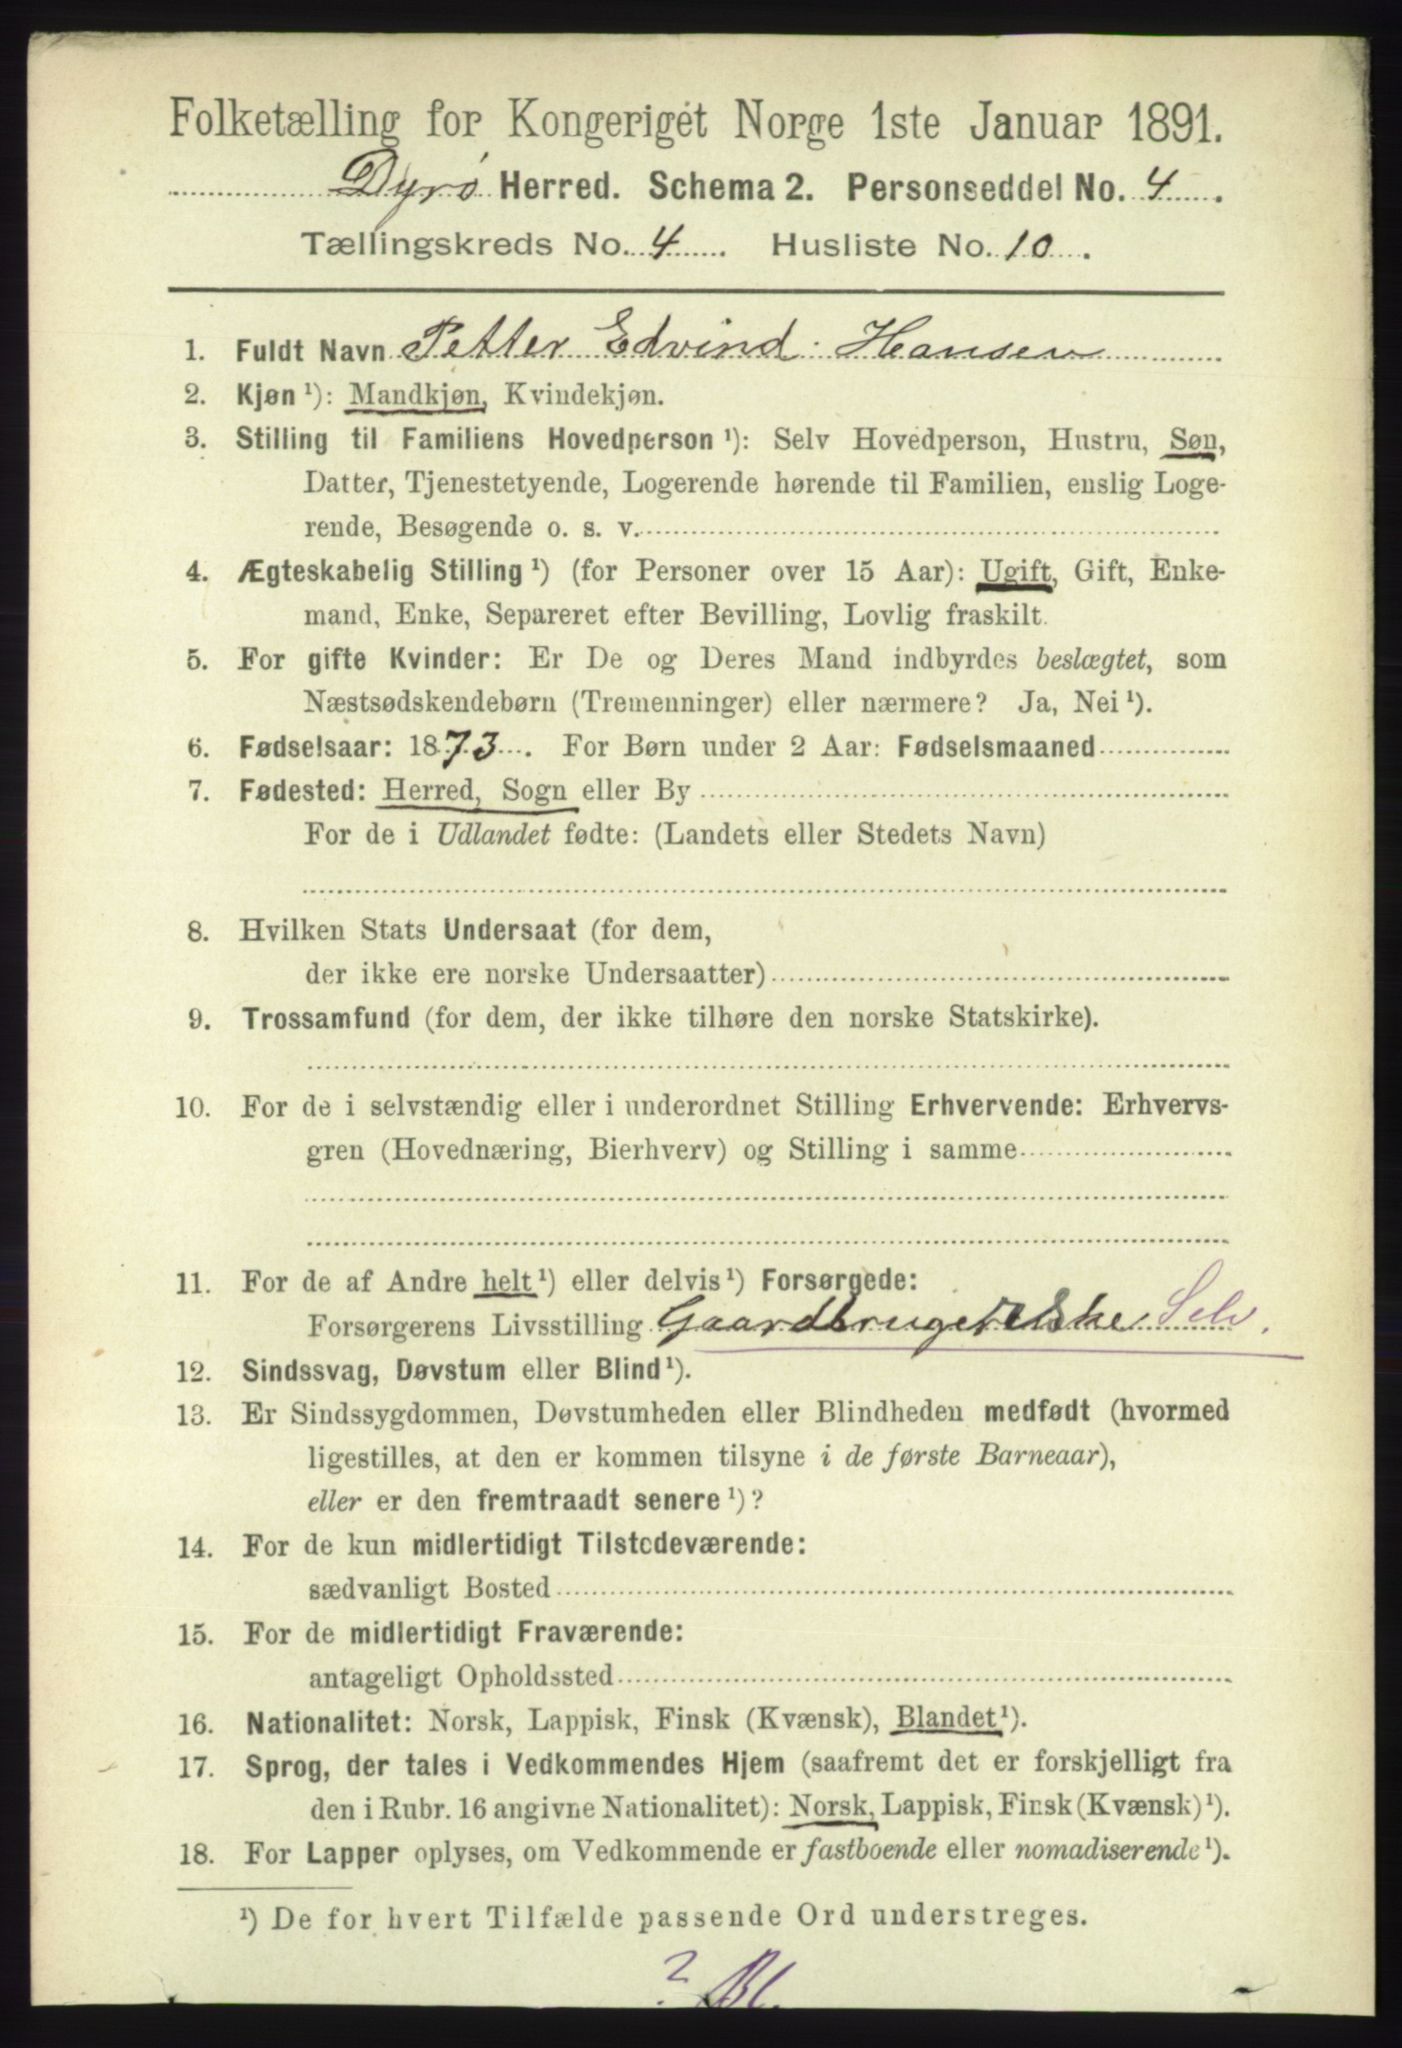 Folketælling for Kongeriget Norge 1ste Januar 1891.
Dyrø Herred. Schema 2. Personseddel No. 4.
Tællingskreds No. 4. Husliste No. 10.
1. Fuldt Navn Petter Edvind Hansen
2. Kjøn ¹): Mandkjøn, Kvindekjøn.
3. Stilling til Familiens Hovedperson ¹): Selv Hovedperson, Hustru, Søn,
Datter, Tjenestetyende, Logerende hørende til Familien, enslig Loge-
rende, Besøgende o. s. v.
4. Ægteskabelig Stilling ¹) (for Personer over 15 Aar): Ugift, Gift, Enke-
mand, Enke, Separeret efter Bevilling, Lovlig fraskilt.
5. For gifte Kvinder: Er De og Deres Mand indbyrdes beslægtet, som
Næstsødskendebørn (Tremenninger) eller nærmere? Ja, Nei ¹).
6. Fødselsaar: 1873. For Børn under 2 Aar: Fødselsmaaned
7. Fødested: Herred, Sogn eller By
For de i Udlandet fødte: (Landets eller Stedets Navn)
8. Hvilken Stats Undersaat (for dem,
der ikke ere norske Undersaatter)
9. Trossamfund (for dem, der ikke tilhøre den norske Statskirke).
10. For de i selvstændig eller i underordnet Stilling Erhvervende: Erhvervs-
gren (Hovednæring, Bierhverv) og Stilling i samme
11. For de af Andre helt ¹) eller delvis ¹) Forsørgede:
Forsørgerens Livsstilling Selv.
12. Sindssvag, Døvstum eller Blind ¹).
13. Er Sindssygdommen, Døvstumheden eller Blindheden medfødt (hvormed
ligestilles, at den er kommen tilsyne i de første Barneaar),
eller er den fremtraadt senere ¹)?
14. For de kun midlertidigt Tilstedeværende:
sædvanligt Bosted
15. For de midlertidigt Fraværende:
antageligt Opholdssted
16. Nationalitet: Norsk, Lappisk, Finsk (Kvænsk), Blandet ¹).
17. Sprog, der tales i Vedkommendes Hjem (saafremt det er forskjelligt fra
den i Rubr. 16 angivne Nationalitet): Norsk, Lappisk, Finsk (Kvænsk) ¹).
18. For Lapper oplyses, om Vedkommende er fastboende eller nomadiserende ¹).
¹) De for hvert Tilfælde passende Ord understreges.
? Bl.